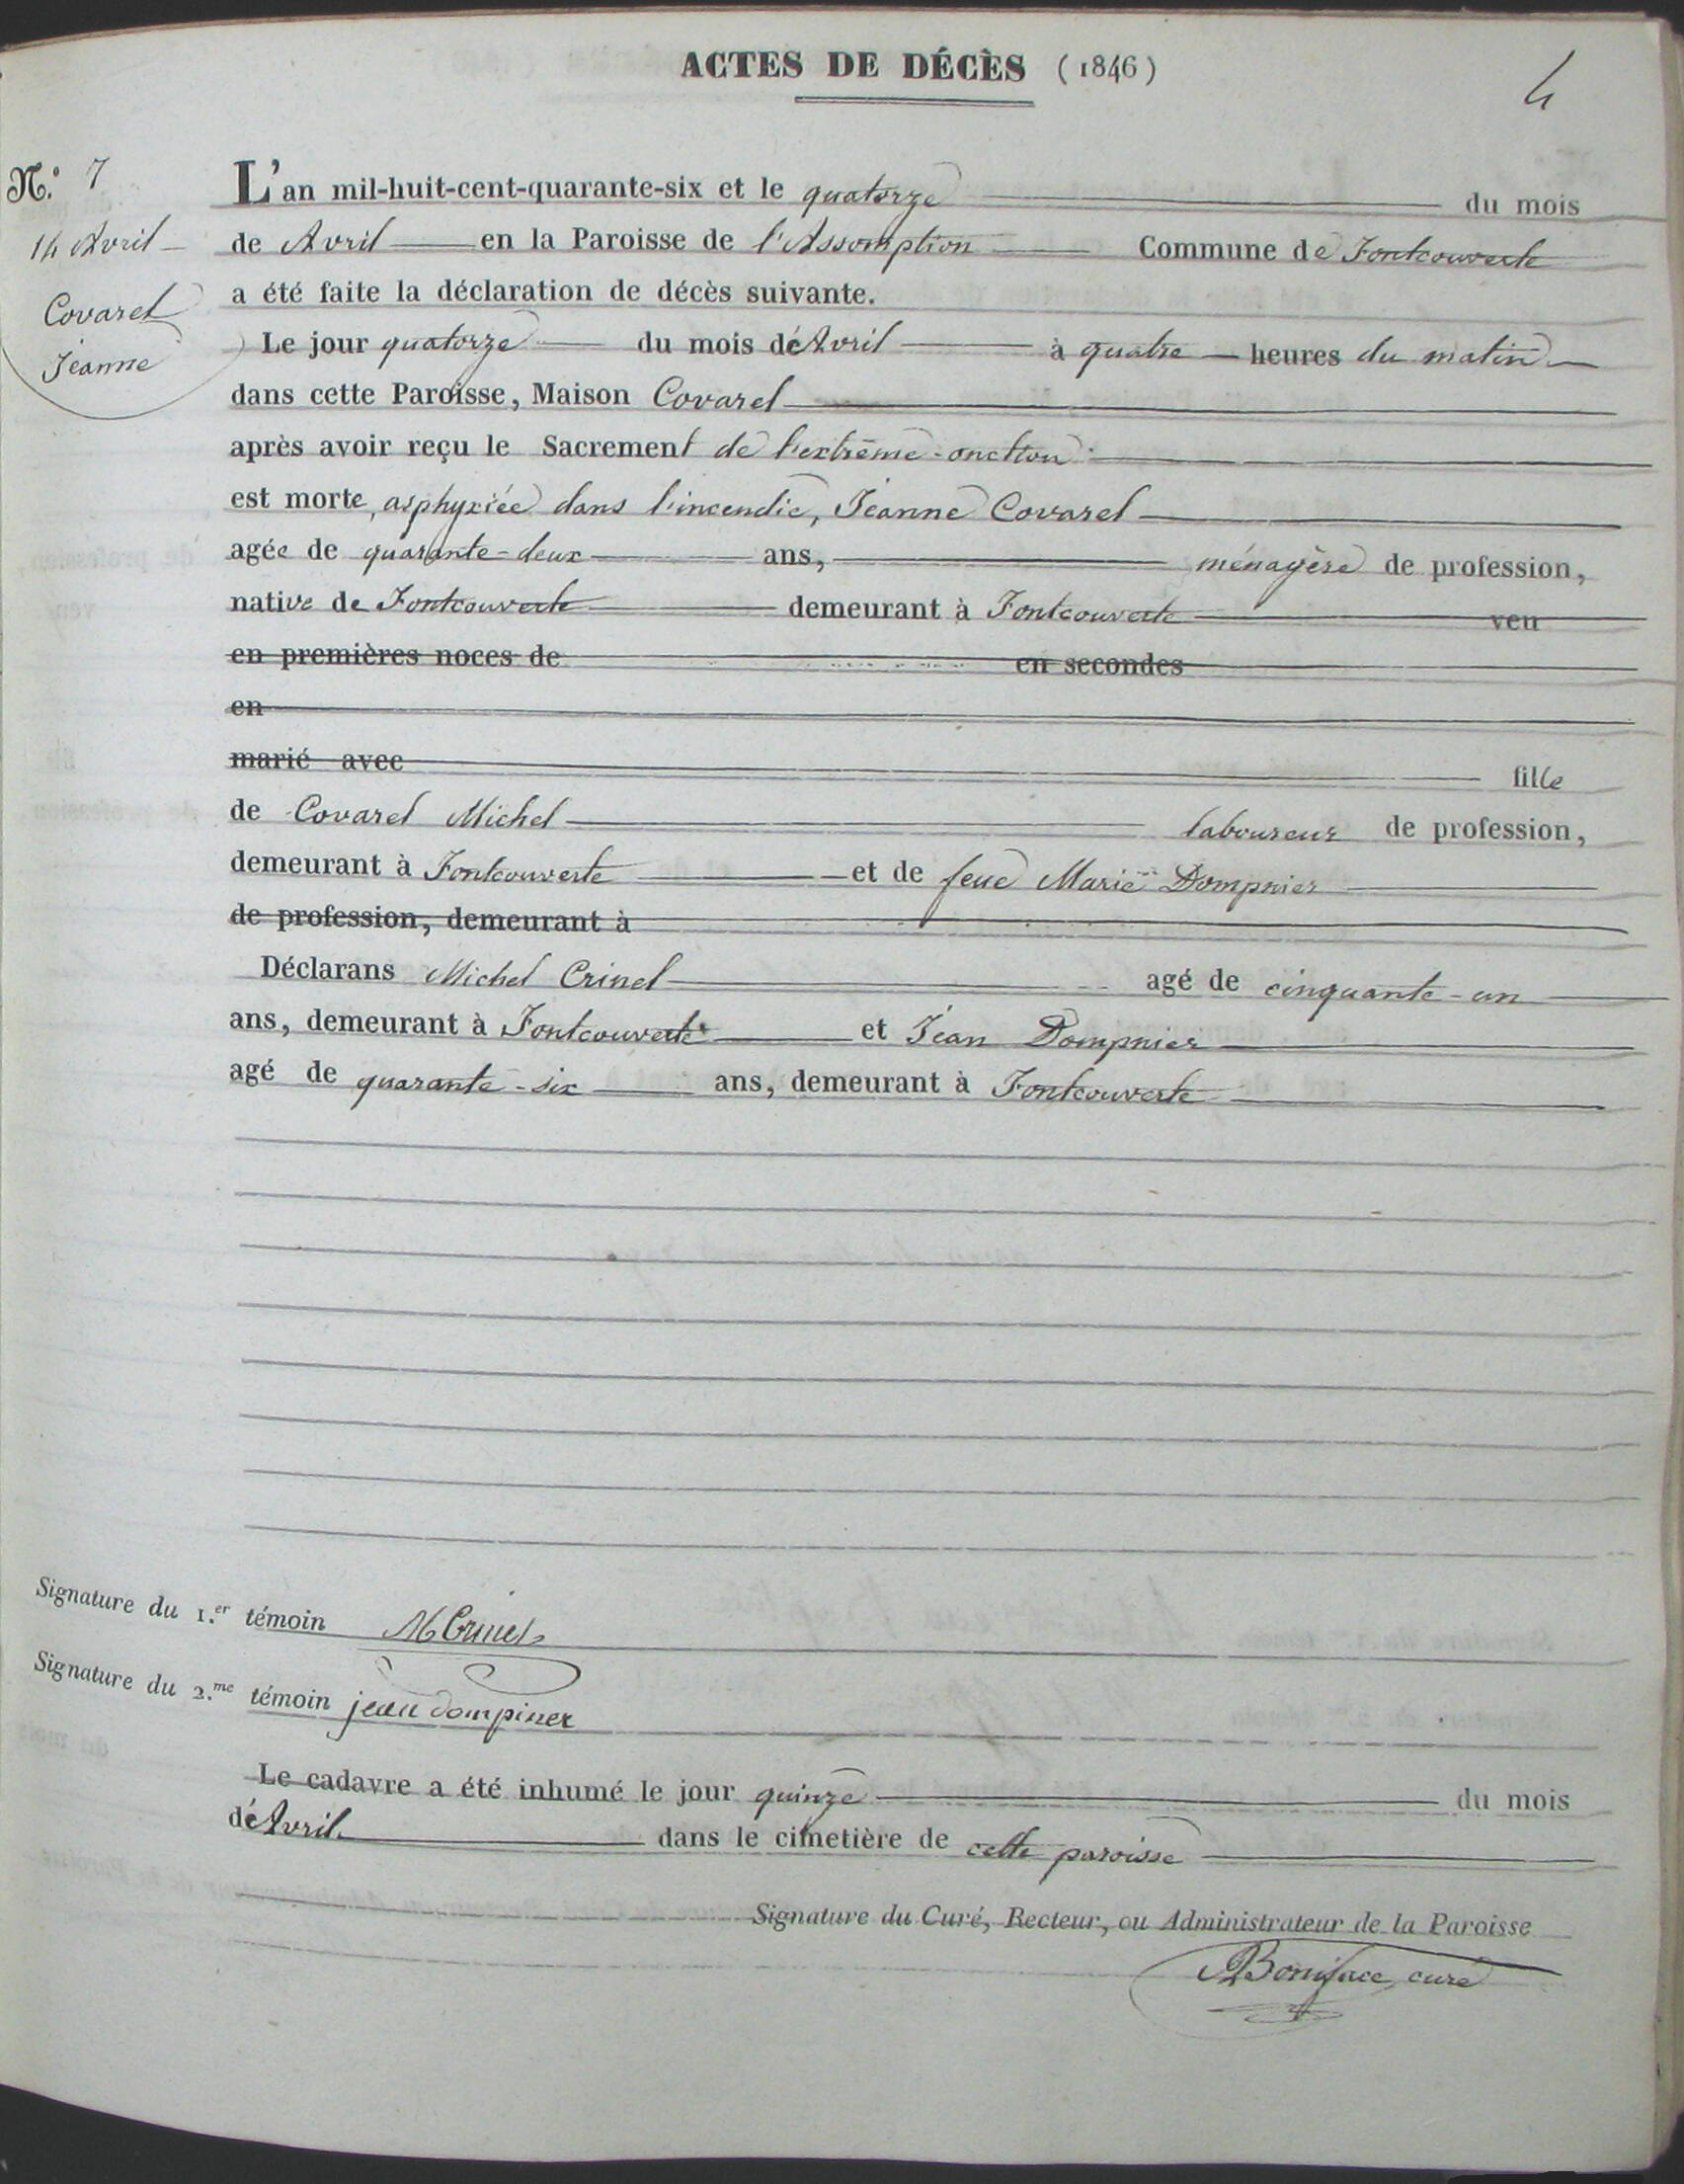 ACTES DE DÉCÈS (1846)
4
N.º 7
14 Avril
Covarel
Jeanne
L'an mil-huit-cent-quarante-six et le quatorze du mois
de Avril en la Paroisse de l'Assomption Commune de Fontcouverte
a été faite la déclaration de décès suivante.
Le jour quatorze du mois de Avril à quatre heures du matin
dans cette Paroisse, Maison Covarel
après avoir reçu le Sacrement de l'extrême-onction
est morte, asphyxiée dans l'incendie, Jeanne Covarel
agée de quarante-deux ans, ménagère de profession,
native de Fontcouverte demeurant à Fontcouverte veu
en premières noces de en secondes
en
marié avec fille
de Covarel Michel laboureur de profession,
demeurant à Fontcouverte et de feue Marie Dompnier
de profession, demeurant à
Déclarans Michel Crinel agé de cinquante-un
ans, demeurant à Fontcouverte et Jean Dompnier
agé de quarante-six ans, demeurant à Fontcouverte
Signature du 1.er témoin M Crinel
Signature du 2.me témoin jean dompiner
Le cadavre a été inhumé le jour quinze du mois
de Avril dans le cimetière de cette paroisse
Signature du Curé, Recteur, ou Administrateur de la Paroisse
Boniface, curé